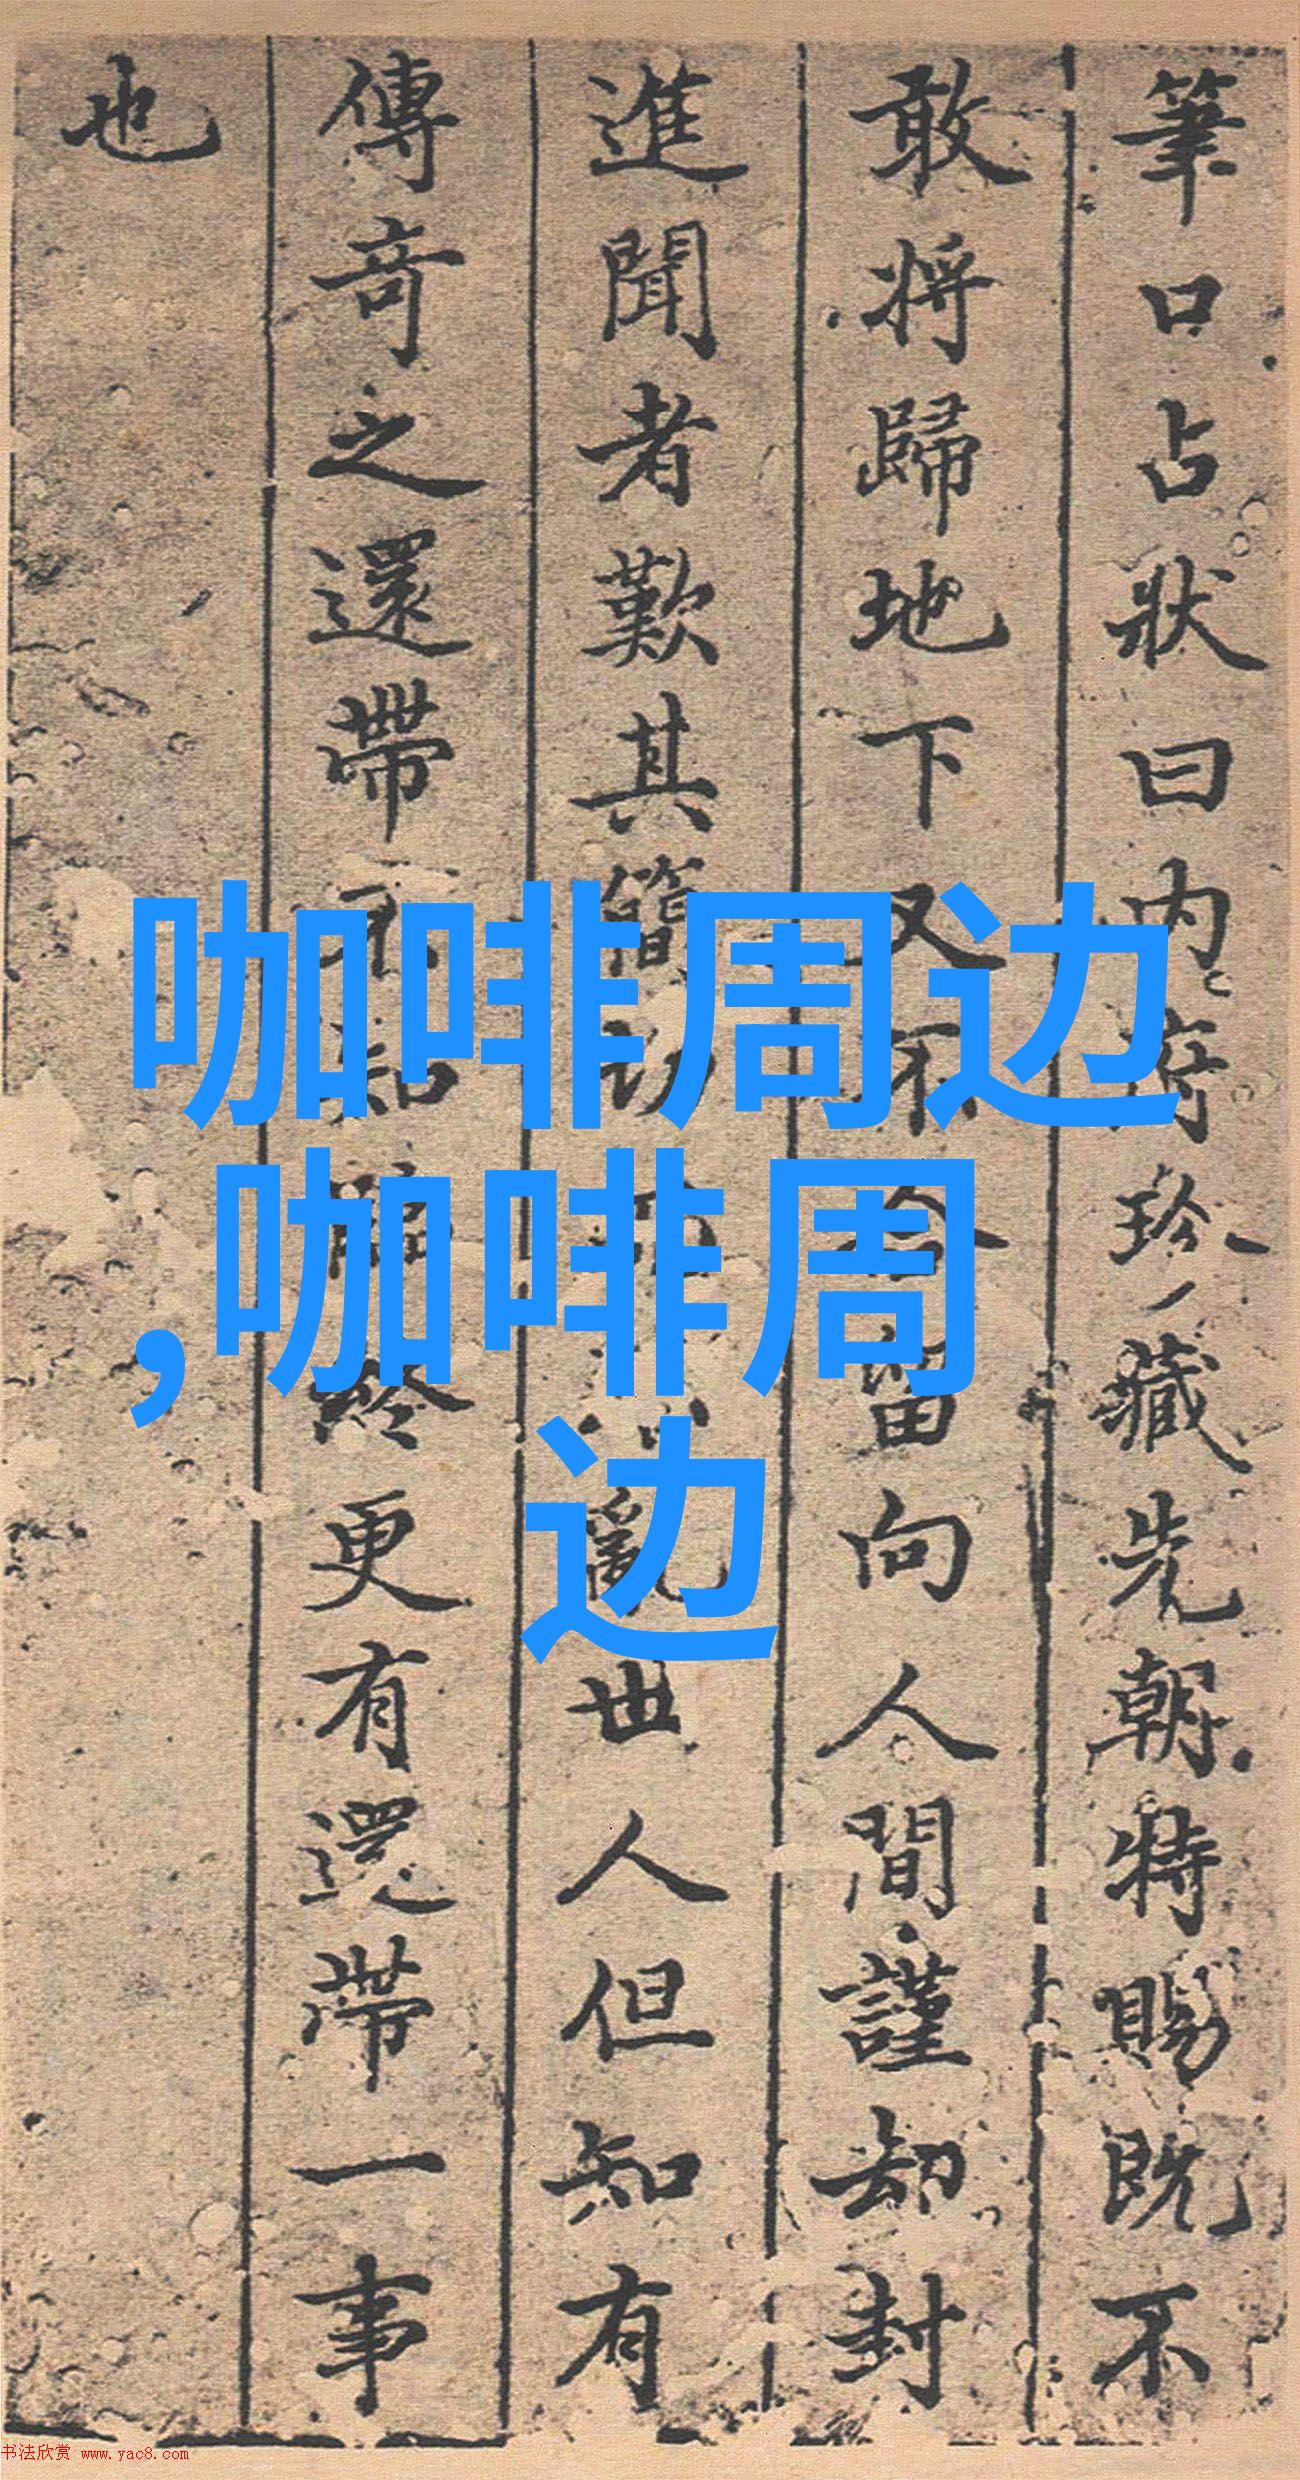 筆口占狀曰内府珍藏先朝特賜既不
敢将歸地下又不合留向人間謹却封
進聞者歎其簡切亂世人但知有
傳奇之還帶不知臨終更有還帶一事
也
咖啡周边
,咖啡周
边
书法欣赏 www.yac8.com